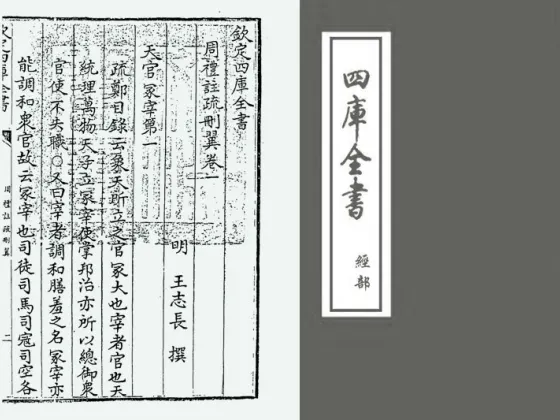 欽定四庫全書
周禮註疏刪翼卷一
明 王志長 撰
天官冢宰第一
疏鄭目錄云象天所立之官冢大也宰者官也天
統理萬物天子立冢宰使掌邦治亦所以總御衆
官使不失職○又曰宰者調和膳羞之名冢宰亦
能調和衆官故云冢宰也司徒司馬司寇司空各
欽定四庫全書
周禮註疏刪翼
二
四庫全書
經部